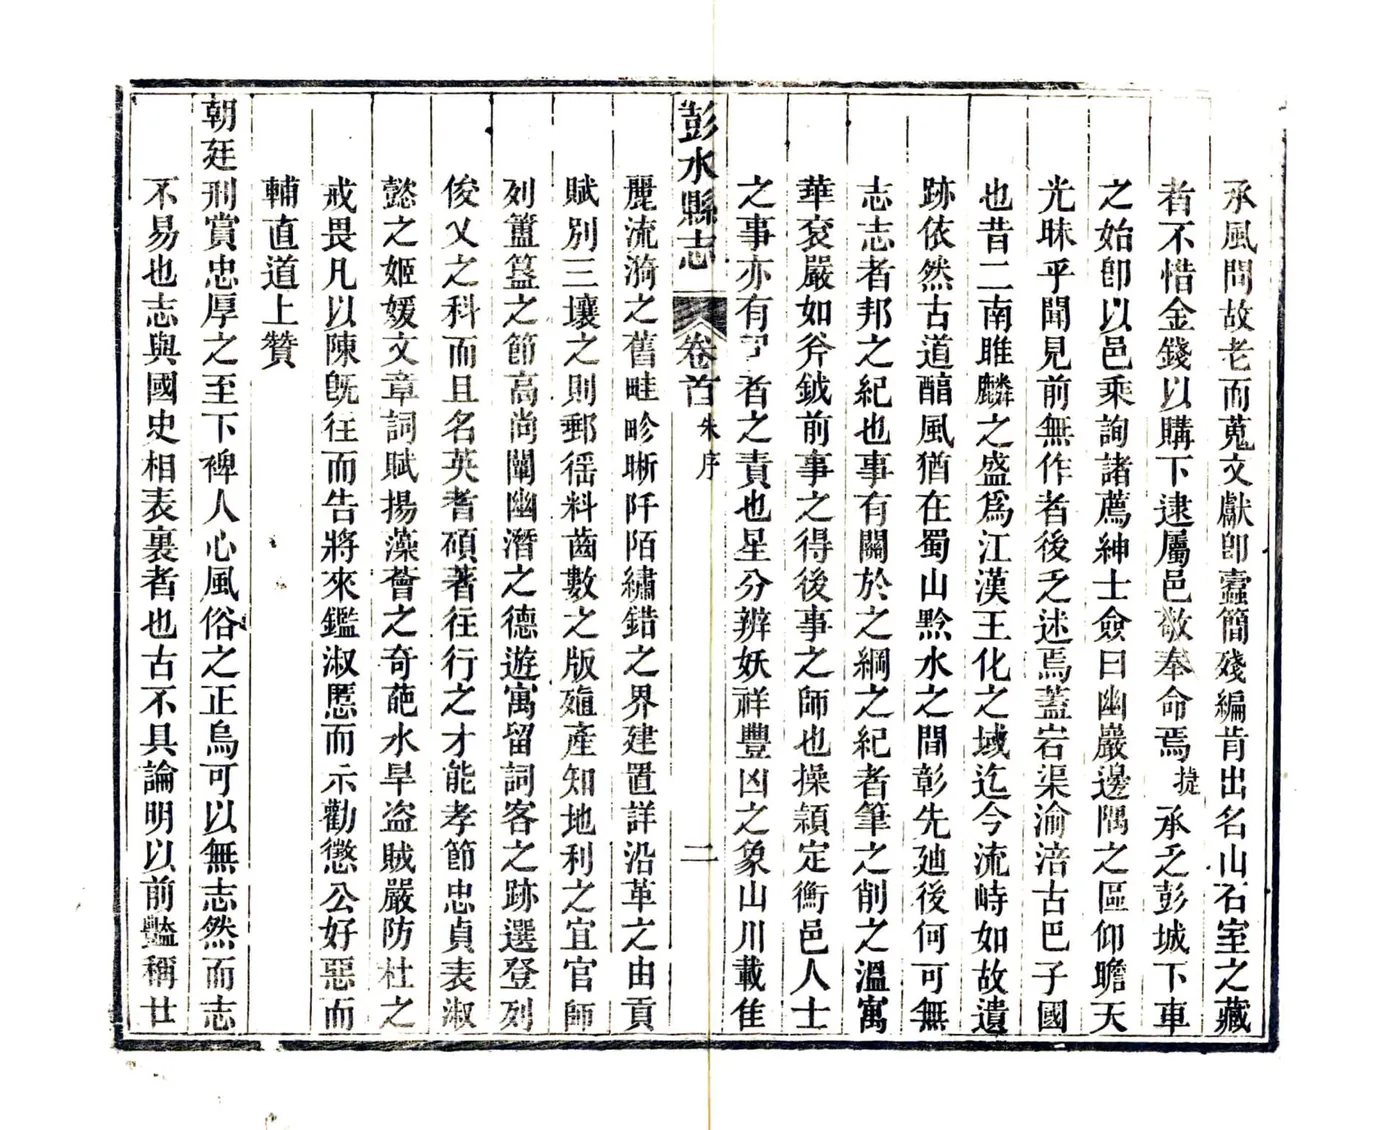 承風問故老而蒐文獻卽蠹簡殘編肯出名山石室之藏
者不惜金錢以購下逮屬邑敬奉命焉捷承乏彭城下車
之始卽以邑乘詢諸薦紳士僉曰幽巖邊隅之區仰瞻天
光昧乎聞見前無作者後乏述焉蓋宕渠渝涪古巴子國
也昔二南雎麟之盛爲江漢王化之域迄今流峙如故遺
跡依然古道醕風猶在蜀山黔水之間彰先廸後何可無
志志者邦之紀也事有關於之綱之紀者筆之削之溫寓
華袞嚴如斧鉞前事之得後事之師也操穎定衡邑人士
之事亦有司者之責也星分辨妖祥豐凶之象山川載佳
彭水縣志 卷首 朱序 二
麗流漪之舊畦畛晰阡陌繡錯之界建置詳沿革之由貢
賦別三壤之則郵徭料齒數之版殖產知地利之宜官師
列簠簋之節高尚闡幽潛之德遊寓留詞客之跡選登列
俊乂之科而且名英耆碩著往行之才能孝節忠貞表淑
懿之姬媛文章詞賦揚藻薈之奇葩水旱盜賊嚴防杜之
戒畏凡以陳旣往而告將來鑑淑慝而示勸懲公好惡而
輔直道上贊
朝廷刑賞忠厚之至下裨人心風俗之正烏可以無志然而志
不易也志與國史相表裏者也古不具論明以前豔稱廿